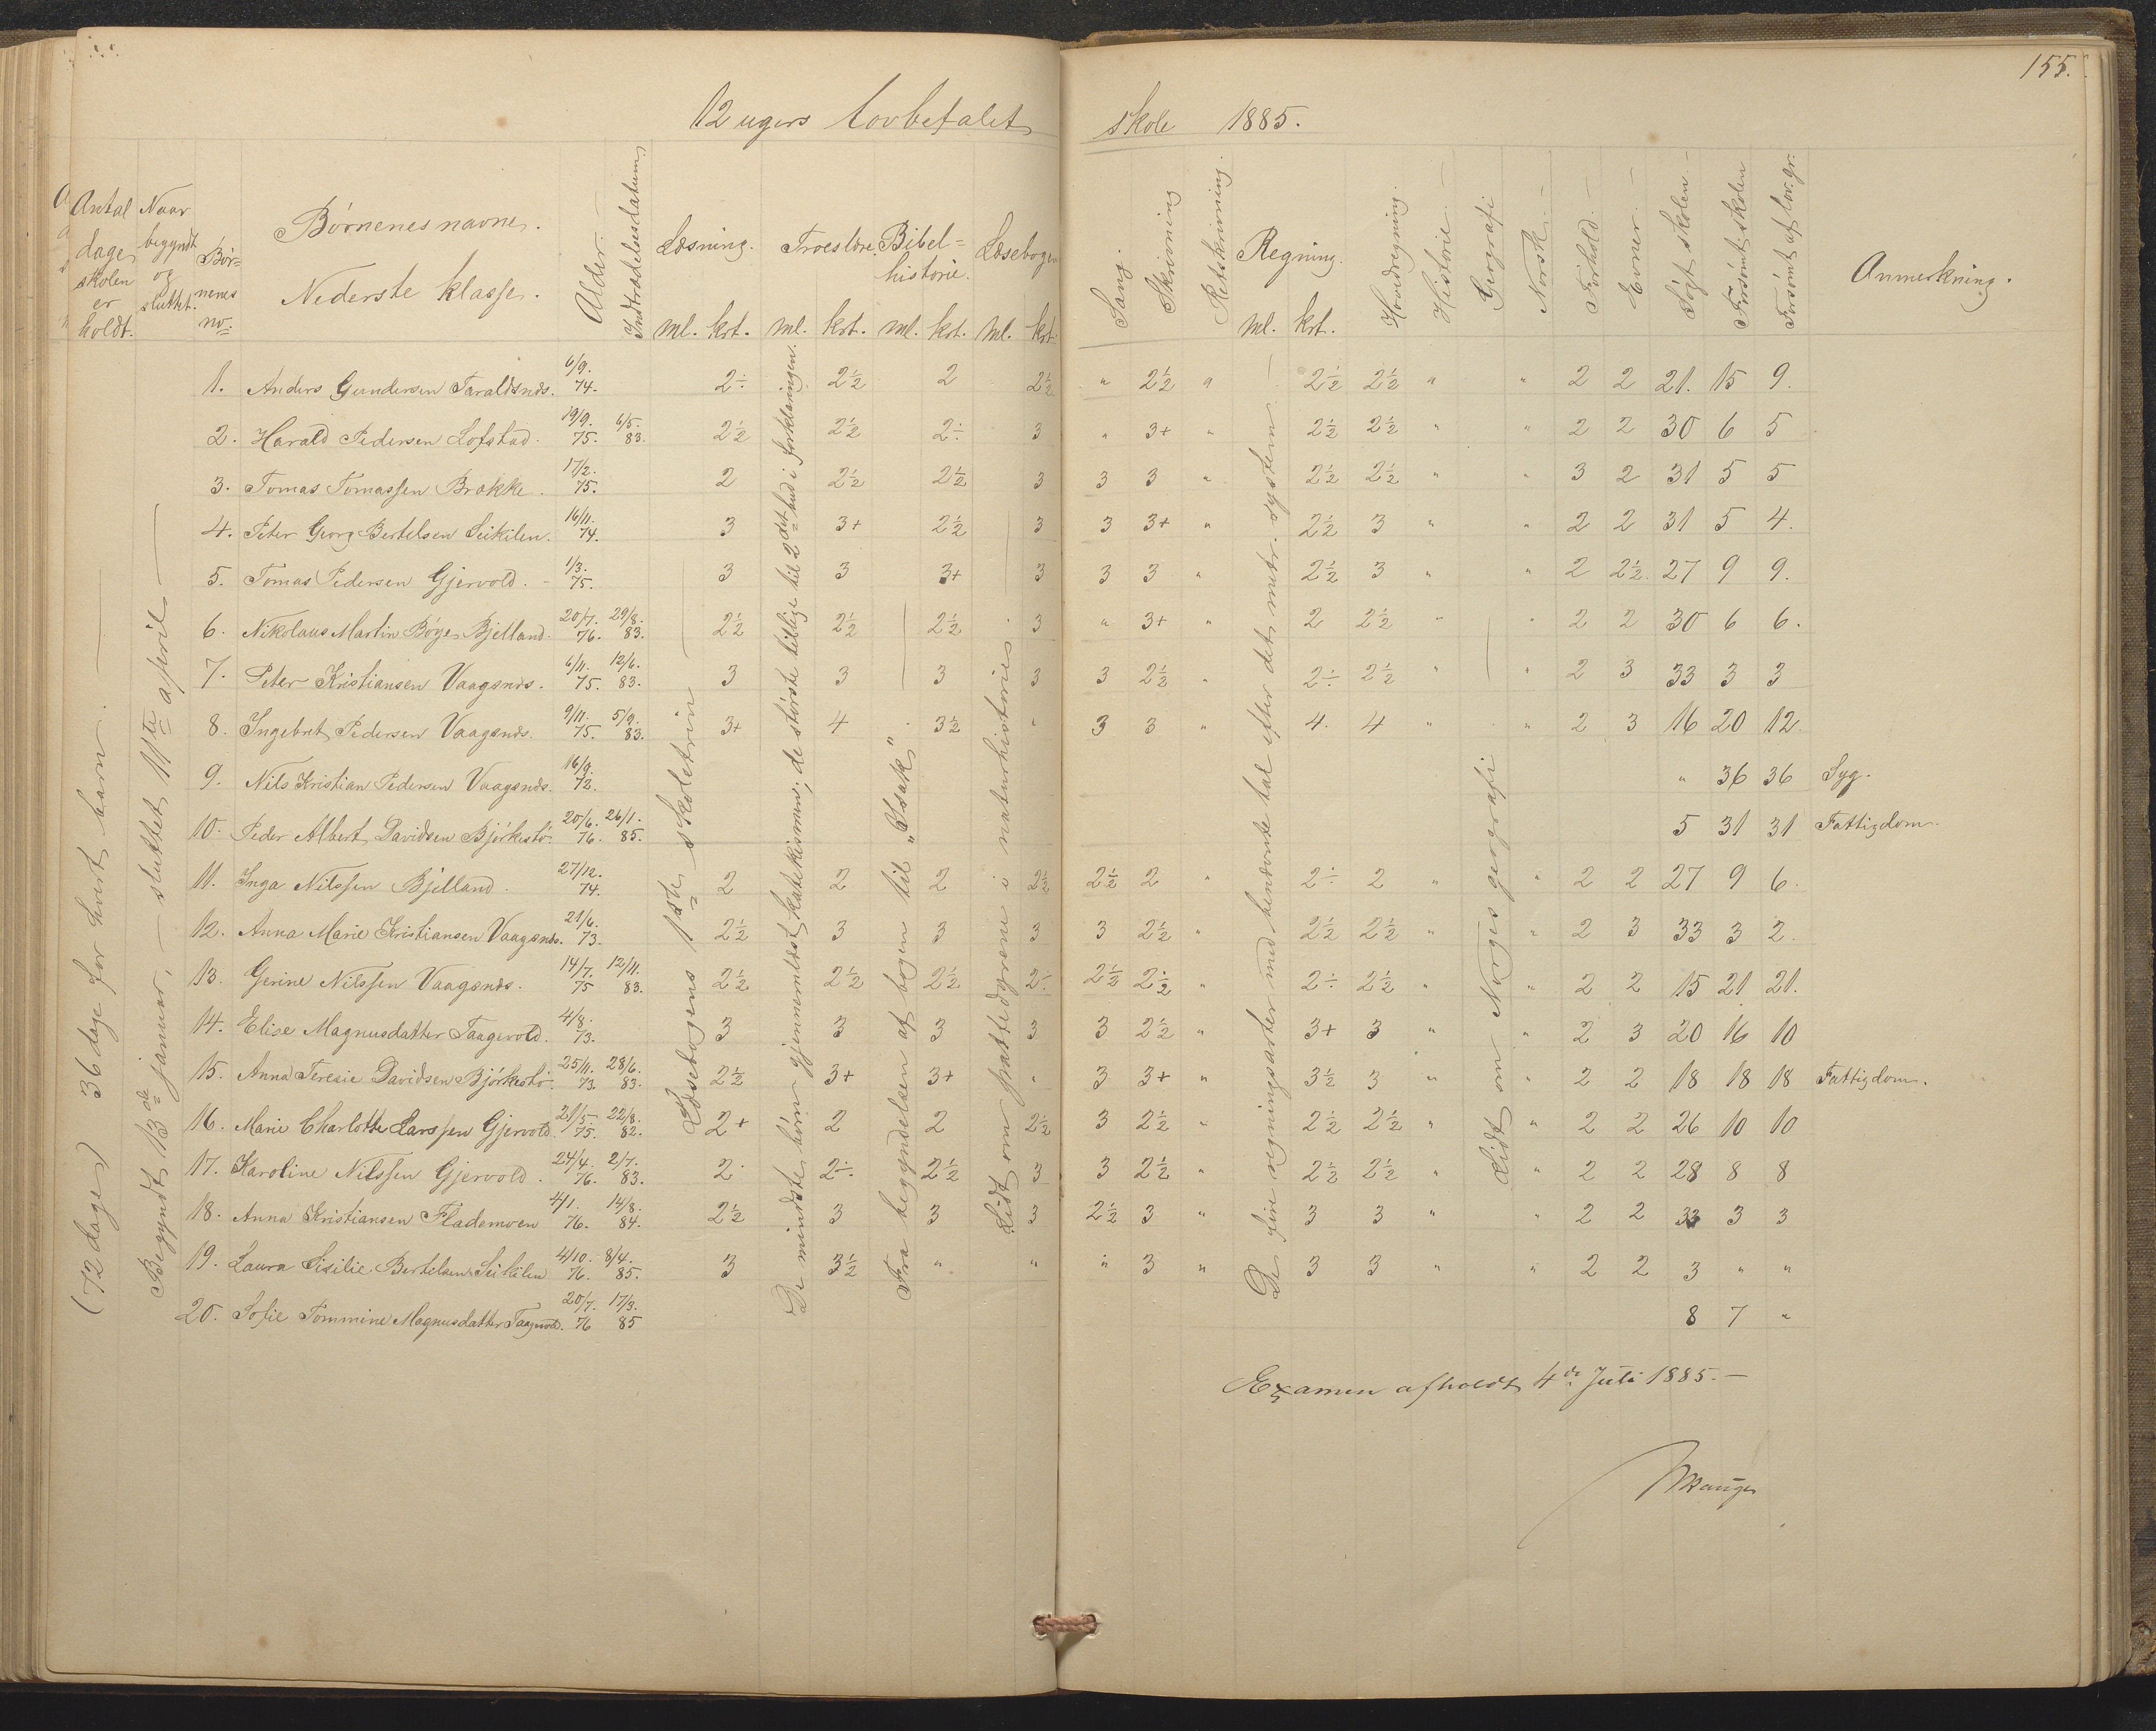 155.
12 ugers lovbefalet skole 1885.
Antal dage skolen er holdt.
Naar begyndt og sluttet.
Børnenes no.
Børnenes navne.
Nederste klasse.
Alder.
Indtrædelsesdatum
Læsning. ml. krt.
Troeslære. ml. krt.
Bibelhistorie. ml. krt.
Læsebogen ml. krt.
Sang.
Skrivning
Retskrivning.
Regning. ml. krt.
Hovedregning.
Historie.
Geografi
Norsk.
Forhold.
Evner.
Søgt skolen
Forsømt skolen
Forsømt af lov. gr.
Anmerkning.
(72 dage) 36 dage for hvert barn.
Begyndt 13de januar, – sluttet 11te april
Læsebogens 1ste skoletrin
De mindste børn gjennemlæst katekismus; de største tillige til 2det bud i forklaringen.
Fra begyndelsen af bogen til „Isak“
Lidt om pattedyrene i naturhistorien
De fire regningsarter med benævnte tal efter det metr. system
Lidt om Norges geografi
1. Anders Gundersen Taraldsnds. 6/9. 74. 2÷ 2½ 2 2½ " 2½ " 2½ 2½ " " 2 2 21. 15 9.
2. Harald Pedersen Lofstad. 19/9. 75. 6/5. 83. 2½ 2½ 2÷ 3 " 3+ " 2½ 2½ " " 2 2 30 6 5
3. Tomas Tomassen Brække. 17/2. 75. 2 2½ 2½ 3 3 3 " 2½ 2½ " " 3 2 31 5 5
4. Peter Georg Bertelsen Seikilen. 16/11. 74. 3 3+ 2½ 3 3 3+ " 2½ 3 " " 2 2 31 5 4.
5. Tomas Pedersen Gjervold. 1/3. 75. 3 3 3+ 3 3 3 " 2½ 3 " " 2 2½. 27 9 9.
6. Nikolaus Martin Bøye Bjelland. 20/7. 76. 29/8. 83. 2½ 2½ 2½ 3 " 3+ " 2 2½ " " 2 2 30 6 6.
7. Peter Kristiansen Vaagsnds. 6/11. 75. 12/6. 83. 3 3 3 3 3 2½ " 2÷ 2½ " " 2 3 33 3 3
8. Ingebret Pedersen Vaagsnds. 9/11. 75. 5/9. 83. 3+ 4 3½ " 3 3 " 4. 4 " " 2 3 16 20 12.
9. Nils Kristian Pedersen Vaagsnds. 16/9. 72. " 36 36 Syg.
10. Peder Albert Davidsen Bjørkestø. 20/6. 76. 26/1. 85. 5 31 31 Fattigdom.
11. Inga Nilssen Bjelland. 27/12. 74. 2 2 2 2½ 2½ 2 " 2÷ 2 " " 2 2 27 9 6.
12. Anna Marie Kristiansen Vaagsnds. 21/6. 73. 2½ 3 3 3 3 2½ " 2½ 2½ " " 2 3 33 3 2.
13. Gerine Nilssen Vaagsnds. 14/7. 75 12/11. 83. 2½ 2½ 2½ 2÷ 2½ 2½ " 2÷ 2½ " " 2 2 15 21 21.
14. Elise Magnusdatter Taagevold. 4/8. 73. 3 3 3 3 3 2½ " 3+ 3 " " 2 3 20 16 10
15. Anna Teresie Davidsen Bjørkestø. 25/11. 73. 28/6. 83. 2½ 3+ 3+ " 3 3+ " 3½ 3 " " 2 2 18 18 18 Fattigdom.
16. Marie Charlotte Larssen Gjervold 21/5. 75. 22/8. 82. 2+ 2 2 2½ 3 2½ " 2½ 2½ " " 2 2 26 10 10
17. Karoline Nilssen Gjervold. 24/4. 76. 2/7. 83. 2 2÷ 2½ 3 3 2½ " 2½ 2½ " " 2 2 28 8 8
18. Anna Kristiansen Flademoen 4/1. 76. 14/8. 84. 2½ 3 3 3 2½ 3 " 3 3 " " 2 2 33 3 3
19. Laura Sisilie Bertelsen Seikilen 4/10. 76. 8/4. 85. 3 3½ " " " 3 " 3 3 " " 2 2 3 " "
20. Sofie Tommine Magnusdatter Taagevold. 20/7. 76 17/3. 85 8 7 "
Examen afholdt 4de Juli 1885.–